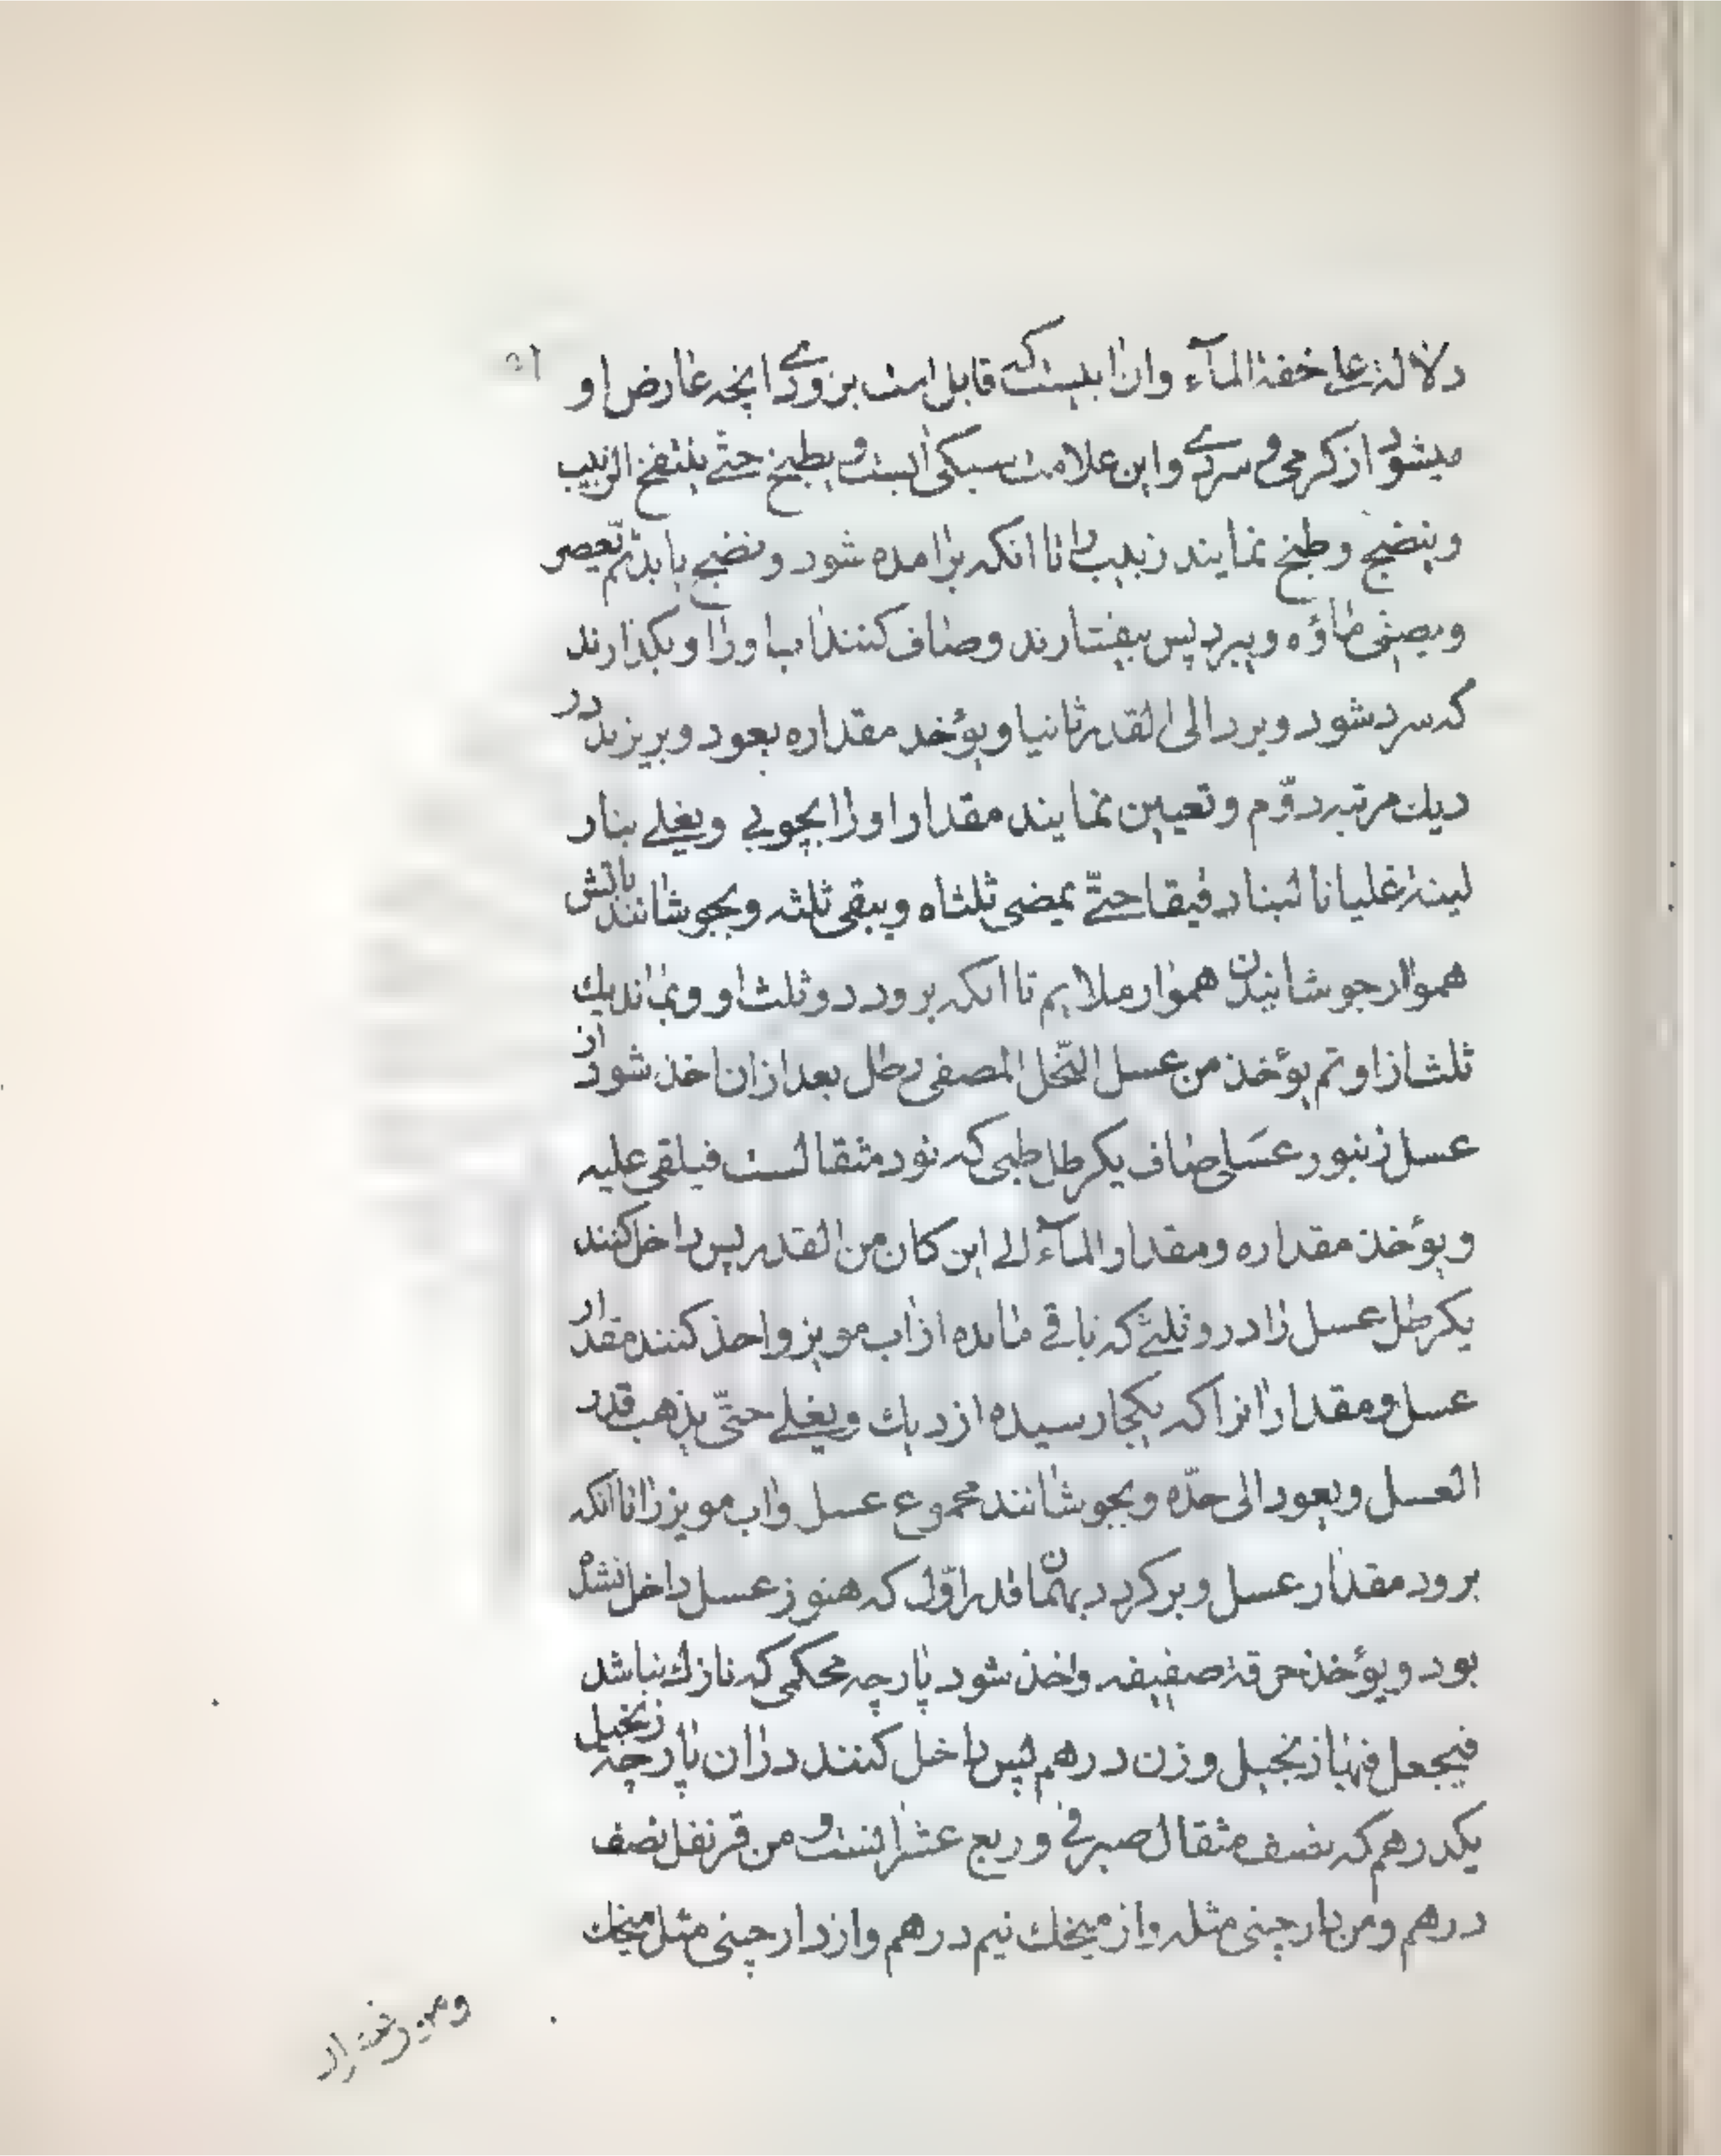 دلالة على خفة الماء وان ابیست که قابل است بزودی انچه عارض او
میشود از کرمی و سردی واین علامت سبکی ابست و یطبخ حتی ینتفخ الزبیب
وینضج وطبخ نمایند زبیب را تا انکه برامده شود ونضج یابد ثم تعصر
ویصفی ماؤه ویبرد پس بیفشارند وصاف کنند اب اورا وبکذارند
که سرد شود ویرد الی القدر ثانیا ویؤخذ مقداره بعود وبریزند در
دیك مرتبه دوّم وتعیین نمایند مقدار اورا بچوبی ویغلی بنار
لینة غلیانا لینا رقیقا حتّی یمضی ثلثاه ویبقی ثلثه وبجوشانند باتش
هموار جوشانیدن هموار ملایم تا انکه برود دو ثلث او وبماند یك
ثلث ازاو ثم یؤخذ من عسل النّحل المصفی رطل بعد ازان اخذ شود از
عسل زنبور عسلی صاف یکرطل طبی که نود مثقالست فیلقی علیه
ویؤخذ مقداره ومقدار الماء الی این کان من القدر پس داخل کنند
یکرطل عسل را در دو ثلثی که باقی مانده از اب مویز واخذ کنند مقدار
عسل ومقدار انرا که بکجا رسیده از دیك ویغلی حتّی یذهب قدر
العسل ویعود الی حدّه وبجوشانند مجموع عسل واب مویز را تا انکه
برود مقدار عسل وبرکردد بهمان قدر اوّل که هنوز عسل داخل نشده
بود ویؤخذ خرقة صفیقه واخذ شود پارچه محکمی که نازك نباشد
فیجعل فیها زنجبیل وزن درهم پس داخل کنند دران پارچه زنجبیل
یکدرهم که نصف مثقال صیرفی وربع عشر انست و من قرنفل نصف
درهم ومن دارچینی مثله واز میخك نیم درهم واز دارچینی مثل میخك